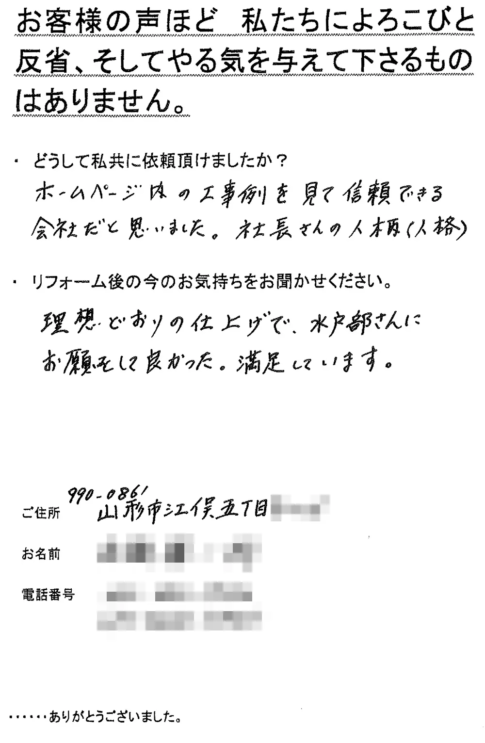 お客様の声ほど 私たちによろこびと
反省、そしてやる気を与えて下さるもの
はありません。
・ どうして私共に依頼頂けましたか？
ホームページ内の工事例を見て信頼できる
会社だと思いました。社長さんの人柄(人格)
・ リフォーム後の今のお気持ちをお聞かせください。
理想どおりの仕上げで、水戸部さんに
お願いして良かった。満足しています。
990-0861
ご住所 山形市江俣五丁目
お名前
電話番号
・・・・・・ありがとうございました。